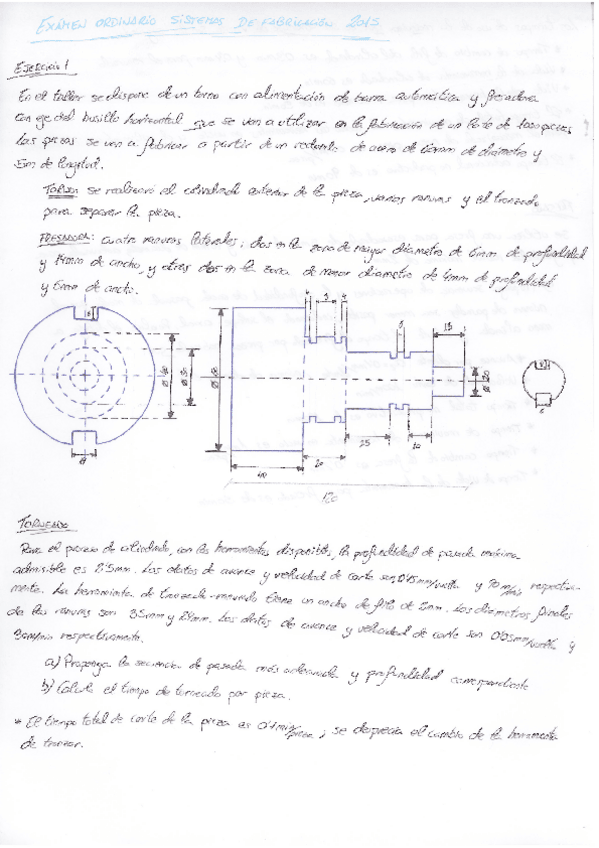 EXÁMEN ORDINARIO SISTEMAS DE FABRICACIÓN 2015
EJERCICIO 1
En el taller se dispone de un torno con alimentación de barra automática y fresadora
con eje del husillo horizontal que se van a utilizar en la fabricación de un lote de 1000 piezas
Las piezas se van a fabricar a partir de un redondo de acero de mm de diámetro y
5m de longitud.
TORNO: se realizará el cilindrado exterior de la pieza, varias ranuras y el tronzado
para separar la pieza.
FRESADORA: cuatro ranuras laterales; dos en la zona de mayor diámetro de 6mm de profundidad
y mm de ancho, y otras dos en la zona de menor diámetro de 4mm de profundidad
y 6mm de ancho.
4 3 4
5
15
40
20
25
10
120
TORNEADO
Para el proceso de cilindrado, con las herramientas disponibles, la profundidad de pasada máxima
admisible es 2'5mm. Los datos de avance y velocidad de corte son 0'15mm/vuelta y 70 m/min respectiva-
mente. La herramienta de tronzado-ranurado tiene un ancho de filo de 2mm. Los diametros finales
de las ranuras son 35mm y 24mm. Los datos de avance y velocidad de corte son 0'05mm/vuelta y
respectivamente.
a) Proponga la secuencia de pasada más adecuada y profundidad correspondiente
b) Calcule el tiempo de torneado por pieza.
* El tiempo total de corte de la pieza es min/pieza; se desprecia el cambio de la herramienta
de tronzar.